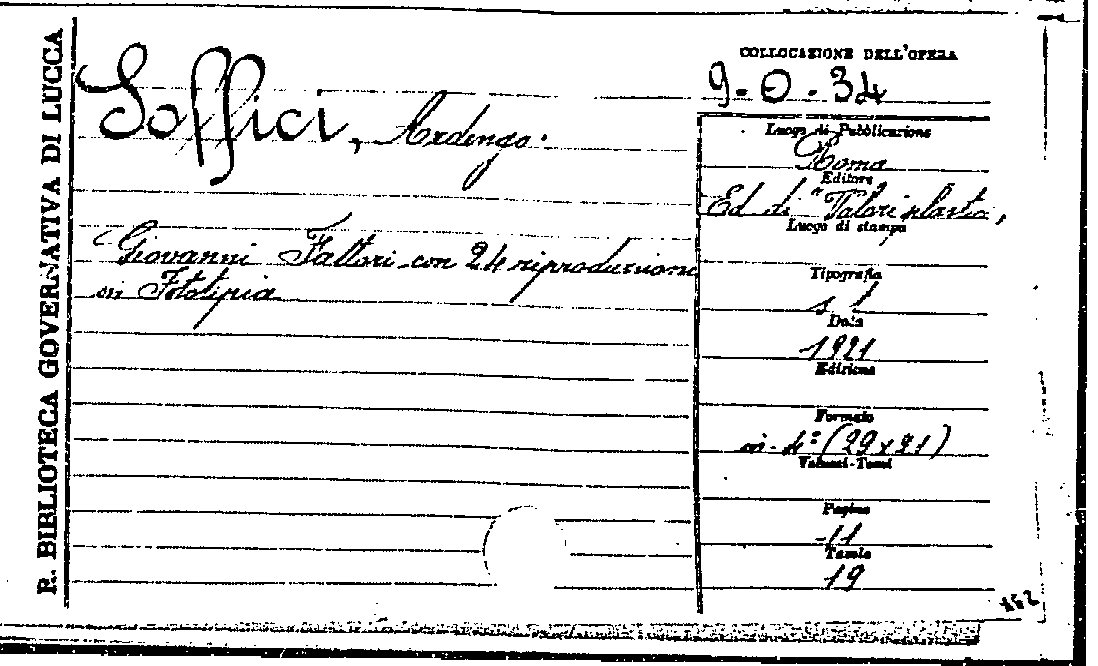 R. BIBLIOTECA GOVERNATIVA DI LUCCA
Soffici, Ardengo.
Giovanni Fattori con 24 riproduzioni
in Fototipia
COLLOCAZIONE DELL'OPERA
9-O-34
Luogo di Pubblicazione
Roma
Editore
Ed. di "Valori plastici,
Luogo di stampa
Tipografia
s. t.
Data
1921
Edizione
Formato
in-4º (29x21)
Volumi-Tomi
Pagine
11
Tavole
19